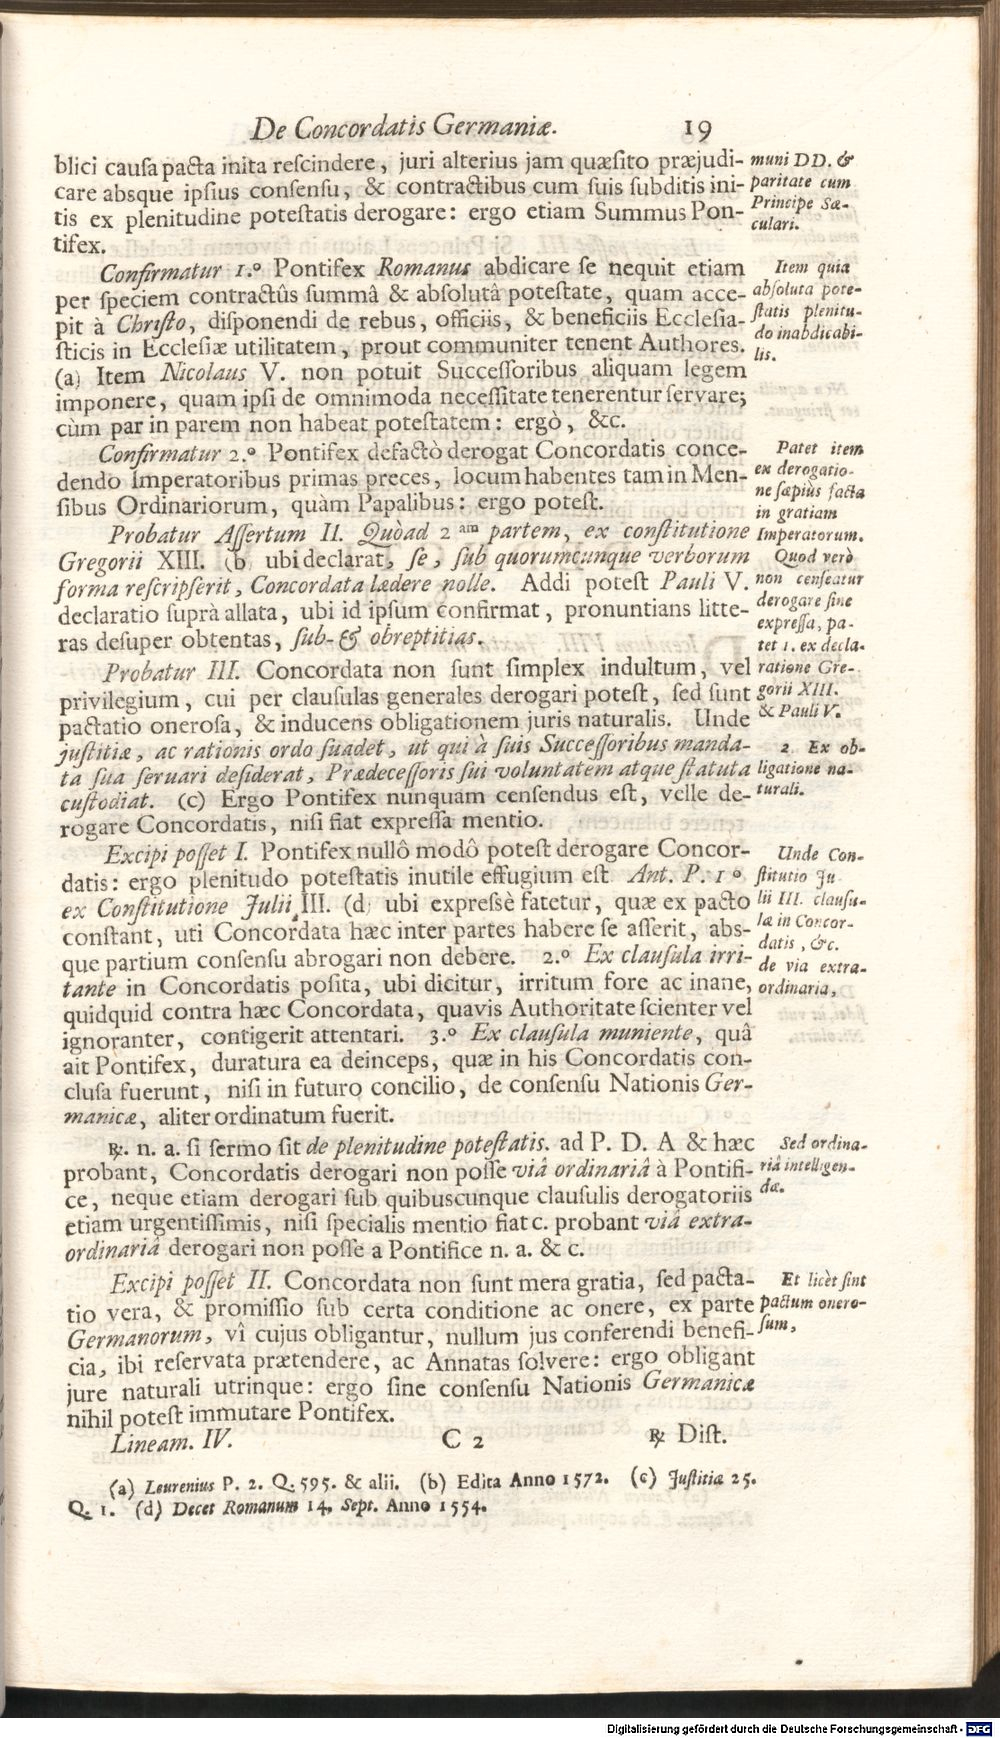 De Concordatis Germaniæ. 19
blici causa pacta inita rescindere, juri alterius jam quæsito præjudi-
care absque ipsius consensu, & contractibus cum suis subditis ini-
tis ex plenitudine potestatis derogare: ergo etiam Summus Pon-
tifex.
muni DD. &
paritate cum
Principe Sæ-
culari.
Confirmatur 1.º Pontifex Romanus abdicare se nequit etiam
per speciem contractûs summâ & absolutâ potestate, quam acce-
pit à Christo, disponendi de rebus, officiis, & beneficiis Ecclesia-
sticis in Ecclesiæ utilitatem, prout communiter tenent Authores.
(a) Item Nicolaus V. non potuit Successoribus aliquam legem
imponere, quam ipsi de omnimoda necessitate tenerentur servare;
cùm par in parem non habeat potestatem: ergò, &c.
Item quia
absoluta pote-
statis plenitu-
do inabdicabi-
lis.
Confirmatur 2.º Pontifex defactò derogat Concordatis conce-
dendo Imperatoribus primas preces, locum habentes tam in Men-
sibus Ordinariorum, quàm Papalibus: ergo potest.
Patet item
ex derogatio-
ne sæpiùs facta
in gratiam
Imperatorum.
Probatur Assertum II. Quòad 2 am partem, ex constitutione
Gregorii XIII. (b) ubi declarat, se, sub quorumcunque verborum
forma rescripserit, Concordata lædere nolle. Addi potest Pauli V.
declaratio suprà allata, ubi id ipsum confirmat, pronuntians litte-
ras desuper obtentas, sub- & obreptitias.
Quod verò
non censeatur
derogare sine
expressa, pa-
tet 1. ex decla-
ratione Gre-
gorii XIII.
& Pauli V.
Probatur III. Concordata non sunt simplex indultum, vel
privilegium, cui per clausulas generales derogari potest, sed sunt
pactatio onerosa, & inducens obligationem juris naturalis. Unde
justitiæ, ac rationis ordo suadet, ut qui à suis Successoribus manda-
ta sua servari desiderat, Prædecessoris sui voluntatem atque statuta
custodiat. (c) Ergo Pontifex nunquam censendus est, velle de-
rogare Concordatis, nisi fiat expressa mentio.
2. Ex ob-
ligatione na-
turali.
Excipi posset I. Pontifex nullô modô potest derogare Concor-
datis: ergo plenitudo potestatis inutile effugium est Ant. P. 1º
ex Constitutione Julii III. (d) ubi expressè fatetur, quæ ex pacto
constant, uti Concordata hæc inter partes habere se asserit, abs-
que partium consensu abrogari non debere. 2.º Ex clausula irri-
tante in Concordatis posita, ubi dicitur, irritum fore ac inane,
quidquid contra hæc Concordata, quavis Authoritate scienter vel
ignoranter, contigerit attentari. 3.º Ex clausula muniente, quâ
ait Pontifex, duratura ea deinceps, quæ in his Concordatis con-
clusa fuerunt, nisi in futuro concilio, de consensu Nationis Ger-
manicæ, aliter ordinatum fuerit.
Unde Con-
stitutio Ju
lii III. clausu-
læ in Concor-
datis, &c.
de via extra-
ordinaria,
℞. n. a. si sermo sit de plenitudine potestatis. ad P. D. A & hæc
probant, Concordatis derogari non posse viâ ordinariâ à Pontifi-
ce, neque etiam derogari sub quibuscunque clausulis derogatoriis
etiam urgentissimis, nisi specialis mentio fiat c. probant viâ extra-
ordinariâ derogari non posse a Pontifice n. a. & c.
Sed ordina-
riâ intelligen-
dæ.
Excipi posset II. Concordata non sunt mera gratia, sed pacta-
tio vera, & promissio sub certa conditione ac onere, ex parte
Germanorum, vî cujus obligantur, nullum jus conferendi benefi-
cia, ibi reservata prætendere, ac Annatas solvere: ergo obligant
jure naturali utrinque: ergo sine consensu Nationis Germanicæ
nihil potest immutare Pontifex.
Et licèt sint
pactum onero-
sum,
Lineam. IV. C 2 ℞ Dist.
(a) Leurenius P. 2. Q. 595. & alii. (b) Edita Anno 1572. (c) Justitiæ 25.
Q. 1. (d) Decet Romanum 14. Sept. Anno 1554.
Digitalisierung gefördert durch die Deutsche Forschungsgemeinschaft - DFG